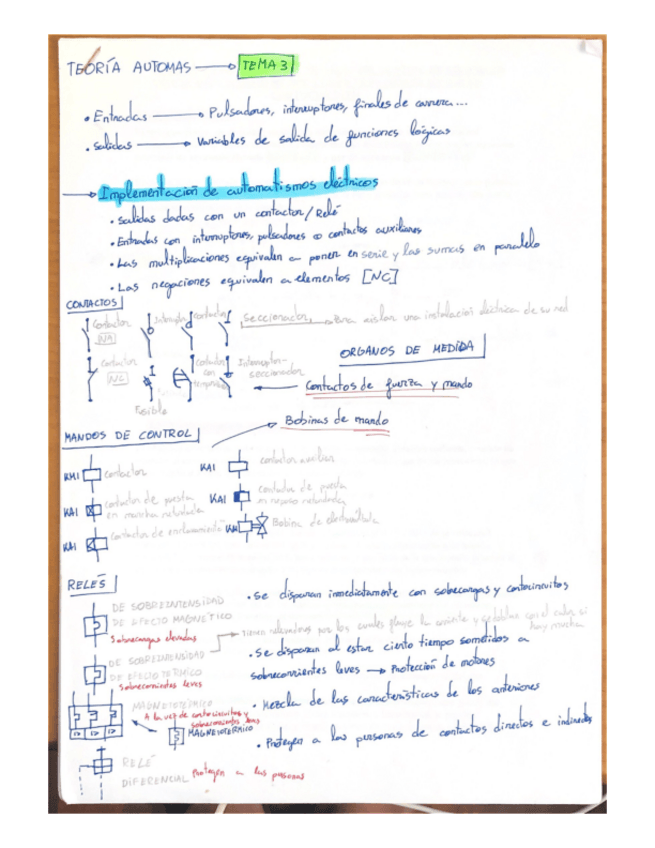 TEORÍA AUTOMAS → TEMA 3
• Entradas → Pulsadores, interruptores, finales de carrera...
• Salidas → Variables de salida de funciones lógicas
→ Implementación de automatismos eléctricos
• Salidas dadas con un contactor/Relé
• Entradas con interruptores, pulsadores o contactos auxiliares
• Las multiplicaciones equivalen a poner en serie y las sumas en paralelo
• Las negaciones equivalen a elementos [NC]
CONTACTOS
Contactor NA
Contactor
Seccionador → Para aislar una instalación eléctrica de su red
Contactor NC
Fusible
Contactor con
Interruptor-seccionador
ORGANOS DE MEDIDA
Contactos de fuerza y mando
MANDOS DE CONTROL
Bobinas de mando
KM1 Contactor
KA1 contactor auxiliar
KA1 contactor de puesta en marcha retardada
KA1 contactor de puesta en reposo retardada
KA1 Contactor de enclavamiento
Bobina de electroválvula
RELÉS
DE SOBREINTENSIDAD
DE EFECTO MAGNÉTICO
Sobrecargas elevadas
• Se disparan inmediatamente con sobrecargas y cortocircuitos
DE SOBREINTENSIDAD
DE EFECTO TÉRMICO
Sobrecorrientes leves
• Se disparan al estar cierto tiempo sometidos a
sobrecorrientes leves → Protección de motores
MAGNETOTÉRMICO
A la vez de cortocircuitos y
sobrecorrientes leves
MAGNETOTERMICO
• Mezcla de las características de los anteriores
• Protegen a las personas de contactos directos e indirectos
RELÉ
DIFERENCIAL Protegen a las personas